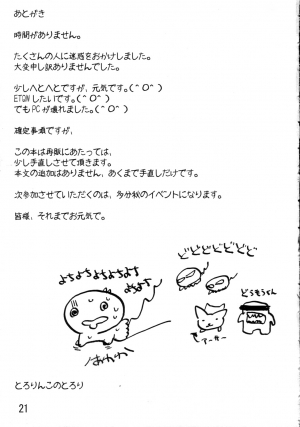 あとがき
時間がありません。
たくさんの人に迷惑をおかけしました。
大変申し訳ありませんでした。
少しへとへとですが、元気です。(^O^)
ETONしたいです。(^O^)
でもPCが壊れました。(^O^)
確定事項ですが、
この本は再販にあたっては、
少し手直しさせて頂きます。
本文の追加はありません、あくまで手直しだけです。
次参加させていただくのは、多分秋のイベントになります。
皆様、それまでお元気で。
どどどどどどど
よちよちよちよちよす
よちよす
アーサー
とろりんこのとろり
21